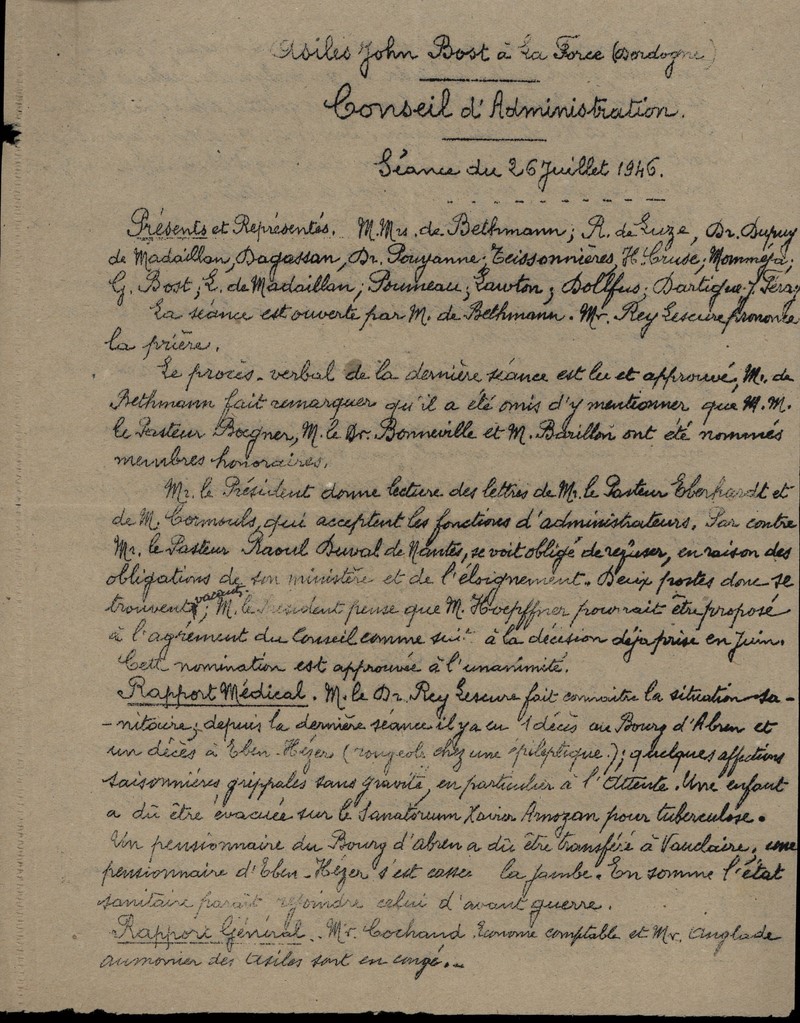 Asiles John Bost à La Force (Dordogne)
Conseil d'Administration.
Séance du 26 Juillet 1946.
Présents et Représentés. M.Mrs. de Bethmann; R. de Luze, Dr. Dupuy
de Madaillan, Dagassan, Dr. Pouyanne; Teissonnières, H. Cruse; Mommeja;
G. Bost; E. de Madaillan; Poumeau; Lawton; Dollfus; Dartigue; J. Féray
La séance est ouverte par M. de Bethmann. Mr. Rey Lescure prononce
la prière.
Le procès-verbal de la dernière séance est lu et approuvé, M. de
Bethmann fait remarquer qu'il a été omis d'y mentionner que M.M.
le Pasteur Bœgner, M. le Dr. Bonneville et M. Barillon ont été nommés
membres honoraires.
Mr. le Président donne lecture des lettres de Mr. le Pasteur Eberhardt et
de M. Cormouls, qui acceptent les fonctions d'administrateurs. Par contre
Mr. le Pasteur Raoul Duval de Nantes, se voit obligé de refuser, en raison des
obligations de son ministère et de l'éloignement. Deux postes donc se
trouvent vacants; M. le Président pense que M. Hoepffner pourrait être proposé
à l'agrément du Conseil comme suit à la décision déja prise en Juin.
Cette nomination est approuvée à l'unanimité.
Rapport Médical. M. le Dr. Rey Lescure fait connaitre la situation sa-
-nitaire; depuis la dernière séance il y a eu 1 décès au Bourg d'Abren et
un décès à Eben-Hézer (rougeole chez une épileptique.); quelques affections
saisonnières grippales sans gravité, en particulier à l'Attente. Une enfant
a dû être évacuée sur le Sanatorium Xavier Arnozan pour tuberculose.
Un pensionnaire du Bourg d'abren a dû être transféré à Vauclaire, une
pensionnaire d'Eben-Hézer s'est cassée la jambe. En somme l'état
sanitaire paraît rejoindre celui d'avant guerre.
Rapport Général. Mr. Cochand Econome comptable et Mr. Anglade
aumonier des Asiles sont en congé.